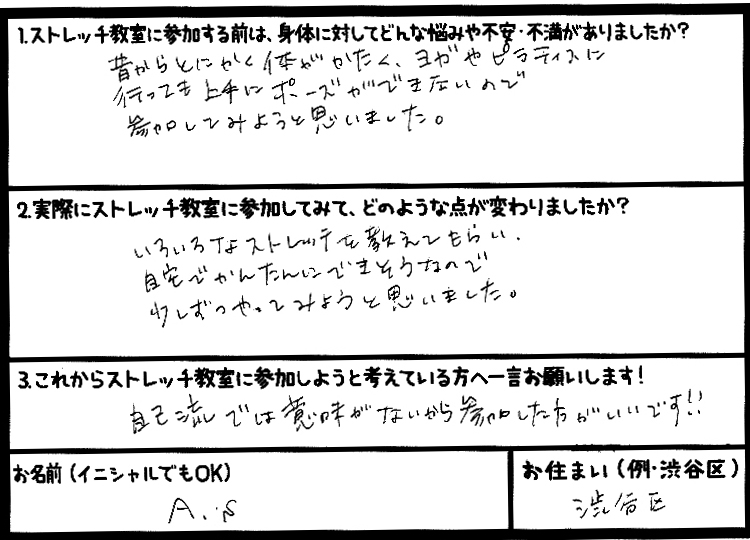 1.ストレッチ教室に参加する前は、身体に対してどんな悩みや不安・不満がありましたか?
昔からとにかく体がかたく、ヨガやピラティスに
行っても上手にポーズができないので
参加してみようと思いました。
2.実際にストレッチ教室に参加してみて、どのような点が変わりましたか?
いろいろなストレッチを教えてもらい、
自宅でかんたんにできそうなので
少しずつやってみようと思いました。
3.これからストレッチ教室に参加しようと考えている方へ一言お願いします!
自己流では意味がないから参加した方がいいです!!
お名前(イニシャルでもOK)
A.S
お住まい(例・渋谷区)
渋谷区